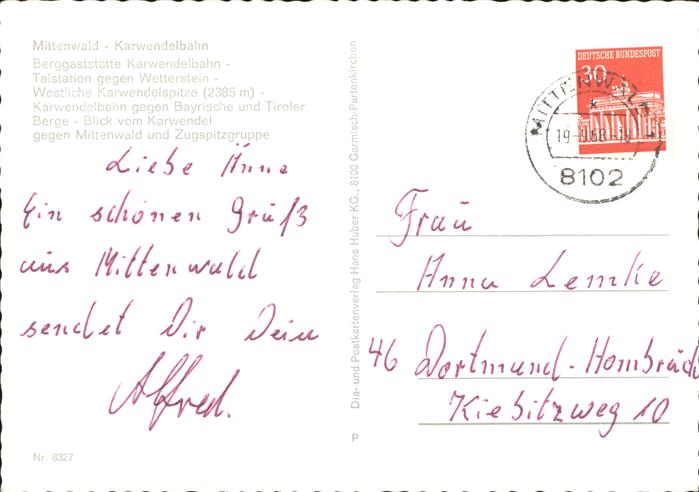 Mittenwald - Karwendelbahn
Berggaststätte Karwendelbahn -
Talstation gegen Wetterstein -
Westliche Karwendelspitze (2385 m) -
Karwendelbahn gegen Bayrische und Tiroler
Berge - Blick vom Karwendel
gegen Mittenwald und Zugspitzgruppe
Liebe Änne
Ein schönen Gruß
aus Mittenwald
sendet Dir Dein
Alfred.
Nr. 8327
Dia- und Postkartenverlag Hans Huber KG., 8100 Garmisch-Partenkirchen
P
DEUTSCHE BUNDESPOST
30
MITTENWALD
8102
Frau
Anna Lemke
46 Dortmund-Hombruch
Kiebitzweg 10